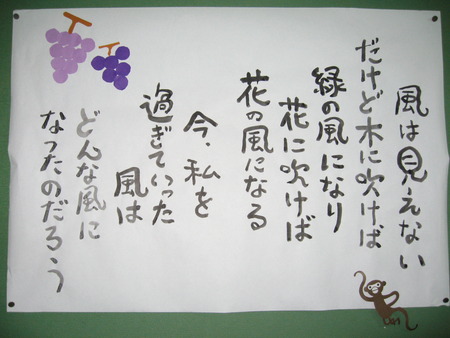 風は見えない
だけど木に吹けば
緑の風になり
花に吹けば
花の風になる
今、私を
過ぎていった
風は
どんな風に
なったのだろう